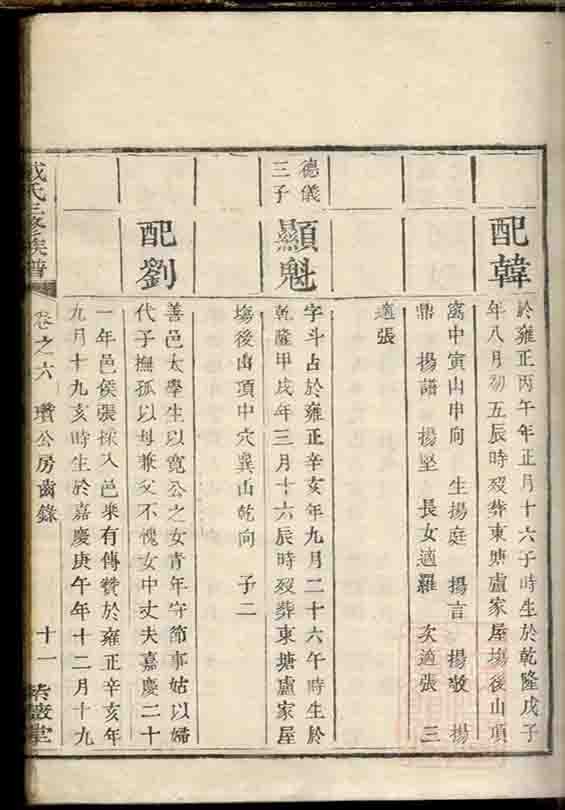 配韓
於雍正丙午年正月十六子時生於乾隆戊子
年八月初五辰時歿葬東塘盧家屋塲後山頂
窩中寅山申向　生揚庭　揚言　揚敬　揚
鼎　揚譜　揚堅　長女適羅　次適張　三
適張
德儀
三子
顯魁
字斗占於雍正辛亥年九月二十六午時生於
乾隆甲戌年三月十六辰時歿葬東塘盧家屋
塲後山頂中穴巽山乾向　子二
配劉
善邑太學生以寬公之女青年守節事姑以婦
代子撫孤以母兼父不愧女中丈夫嘉慶二十
一年邑侯張採入邑乘有傳贊於雍正辛亥年
九月十九亥時生於嘉慶庚午年十二月十九
氏三修族譜
卷之六　瓚公房齒錄　十一
堂